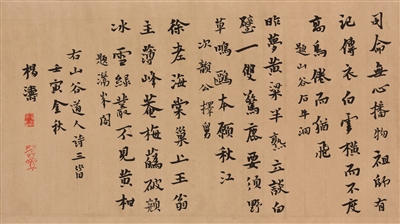 司命無心播物祖師有
記傳衣白雲橫而不度
高鳥倦而猶飛
題山谷石牛洞
昨夢黃粱半熟立談白
璧一雙驚鹿要須野
草鳴鷗本願秋江
次韻公擇舅
徐老海棠巢上王翁
主簿峰菴梅蘤破顏
冰雪綠叢不見黃柑
題灊峯閣
右山谷道人詩三首
壬寅金秋
楊濤